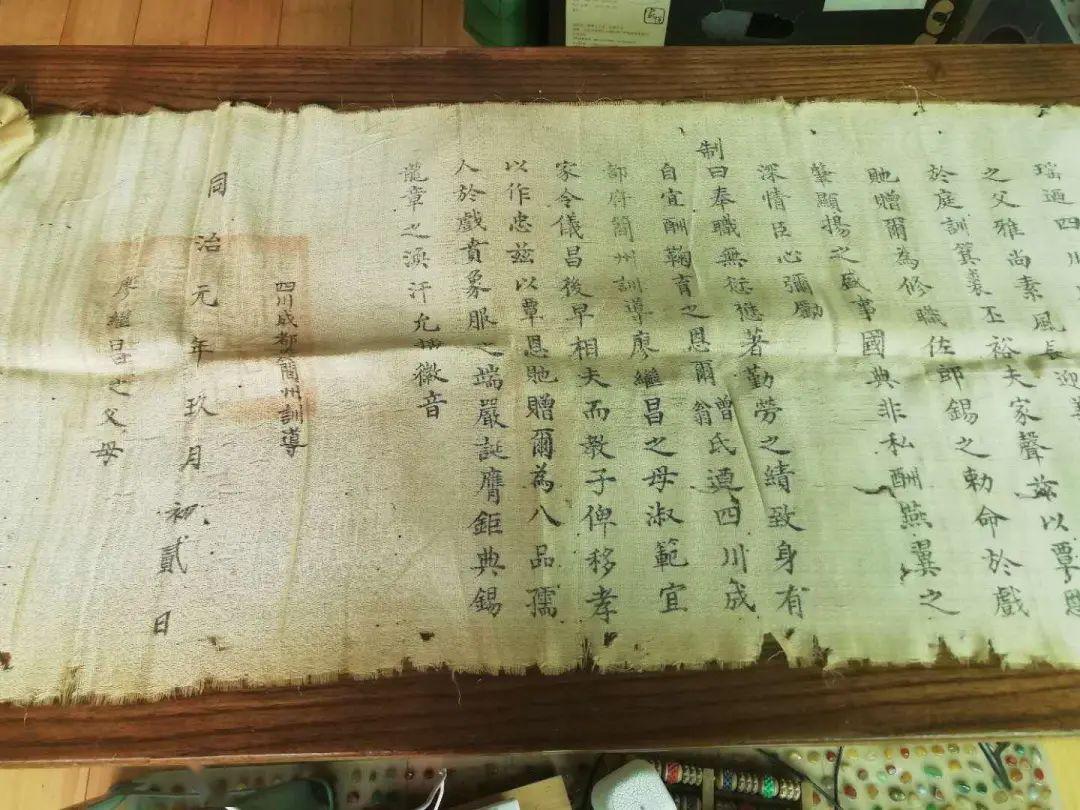 瑤迺四川
之父雅尚素風長迎善
於庭訓箕裘丕裕夫家聲茲以覃恩
貤贈爾為修職佐郎錫之勅命於戲
肇顯揚之盛事國典非私酬燕翼之
深情臣心彌勵
制曰奉職無愆懋著勤勞之績致身有
自宜酬鞠育之恩爾翁爾曾氏迺四川成
都府簡州訓導廖繼昌之母淑範宜
家令儀昌後早相夫而教子俾移孝
以作忠茲以覃恩貤贈爾為八品孺
人於戲賁象服之端嚴誕膺鉅典錫
龍章之渙汗允播徽音
四川成都簡州訓導
同治元年玖月初貳日
廖繼昌之父母